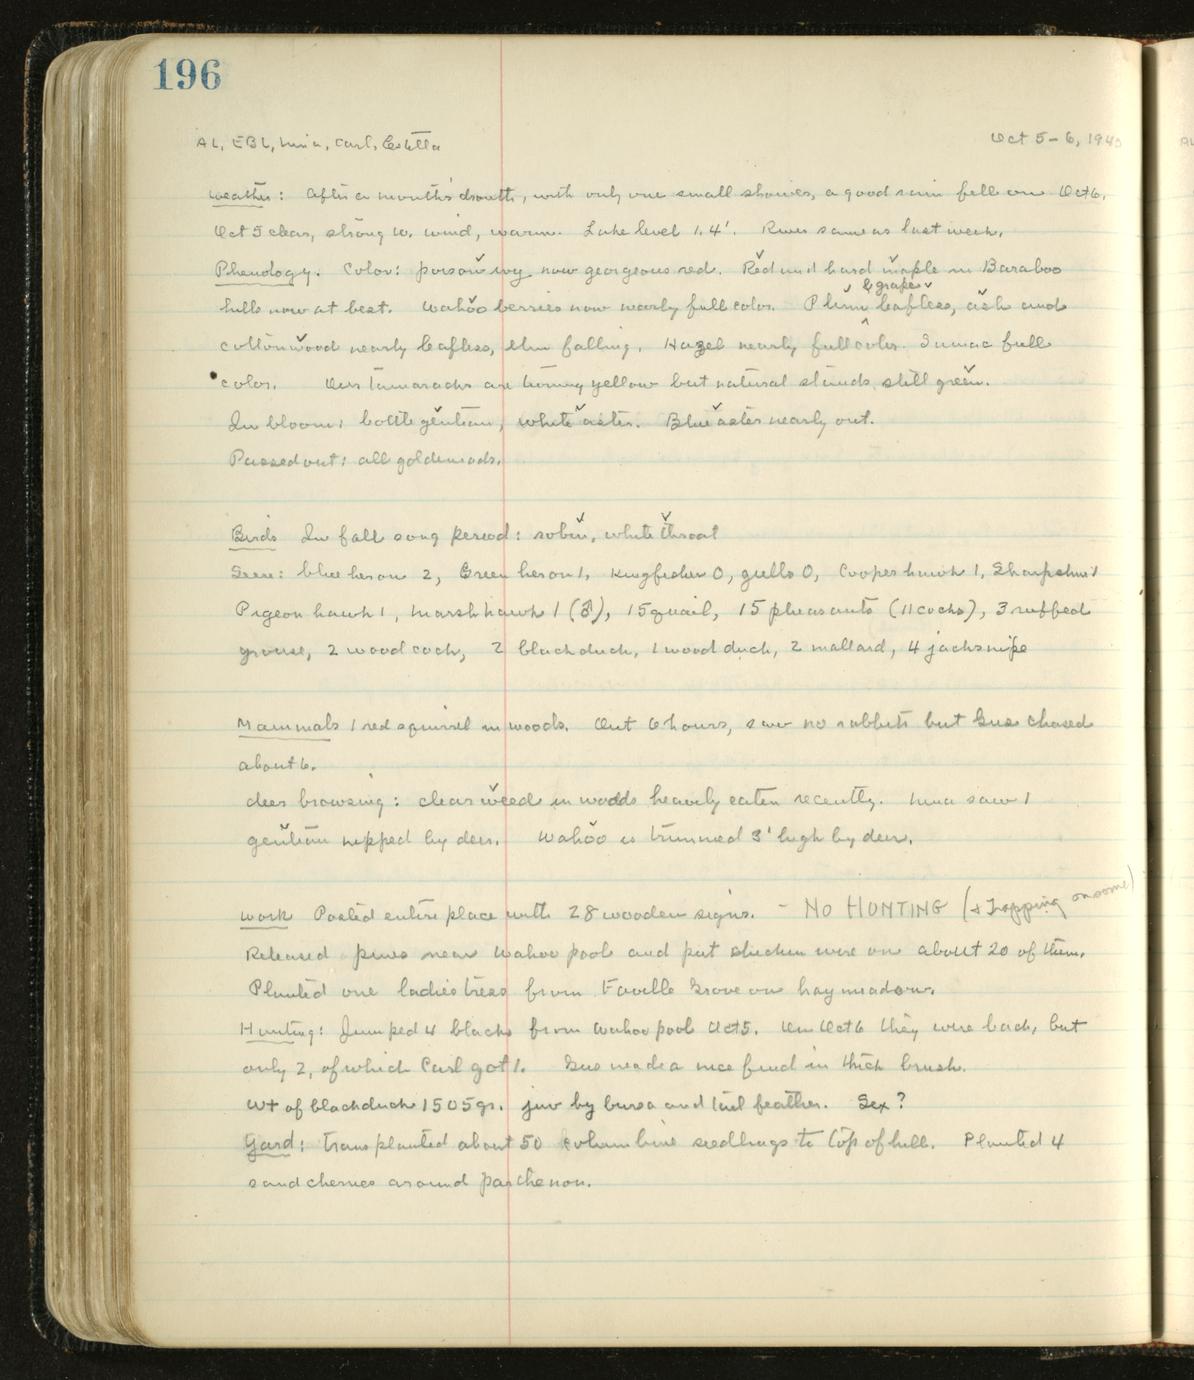 196
AL, EBL, Nina, Carl, Estella Oct 5-6, 1940
Weather: After a month's drouth, with only one small shower, a good rain fell on Oct 6.
Oct 5 clear, strong W. wind, warm. Lake level 1.4'. River same as last week.
Phenology. Color: poison ivy now gorgeous red. Red and hard maple in Baraboo
& grape
hills now at best. Wahoo berries now nearly full color. Plum leafless, ash and
cottonwood nearly leafless, elm falling. Hazel nearly full color. Sumac full
color. Our tamaracks are turning yellow but natural stands still green.
In bloom: bottle gentian, white aster. Blue aster nearly out.
Passed out: all goldenrods.
Birds In fall song period: robin, white throat
Seen: blue heron 2, Green heron 1, Kingfisher 0, gulls 0, Cooper hawk 1, Sharpshin 1
Pigeon hawk 1, Marsh hawk 1 (♂), 15 quail, 15 pheasants (11 cocks), 3 ruffed
grouse, 2 woodcock, 2 black duck, 1 wood duck, 2 mallard, 4 jacksnipe
Mammals 1 red squirrel in woods. Out 6 hours, saw no rabbits but Gus chased
about 6.
deer browsing: clearweed in woods heavily eaten recently. Nina saw 1
gentian nipped by deer. Wahoo is trimmed 3' high by deer.
Work Posted entire place with 28 wooden signs. - NO HUNTING (& Trapping on some)
Released pines near Wahoo pool and put chicken wire on about 20 of them.
Planted one ladies tress from Faville Grove on hay meadow.
Hunting: Jumped 4 blacks from Wahoo pool Oct 5. On Oct 6 they were back, but
only 2, of which Carl got 1. Gus made a nice find in thick brush.
Wt of black duck 1505 gr. juv by bursa and tail feather. Sex?
Yard: transplanted about 50 columbine seedlings to top of hill. Planted 4
sand cherries around parthenon.